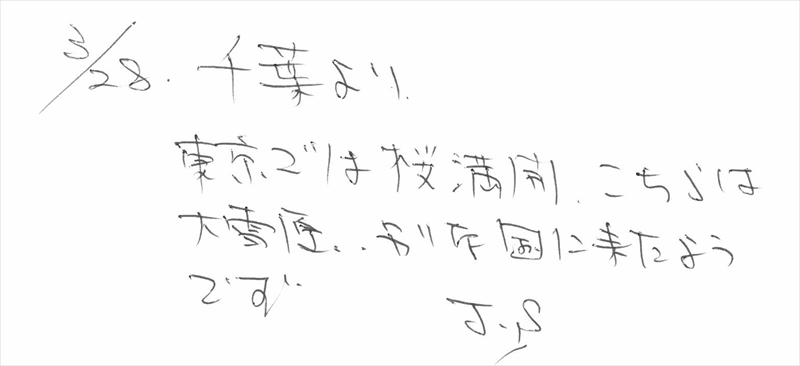 3/28. 千葉より.
東京では桜満開. こちらは
大雪原.. がな国に来たよう
です.
J.S